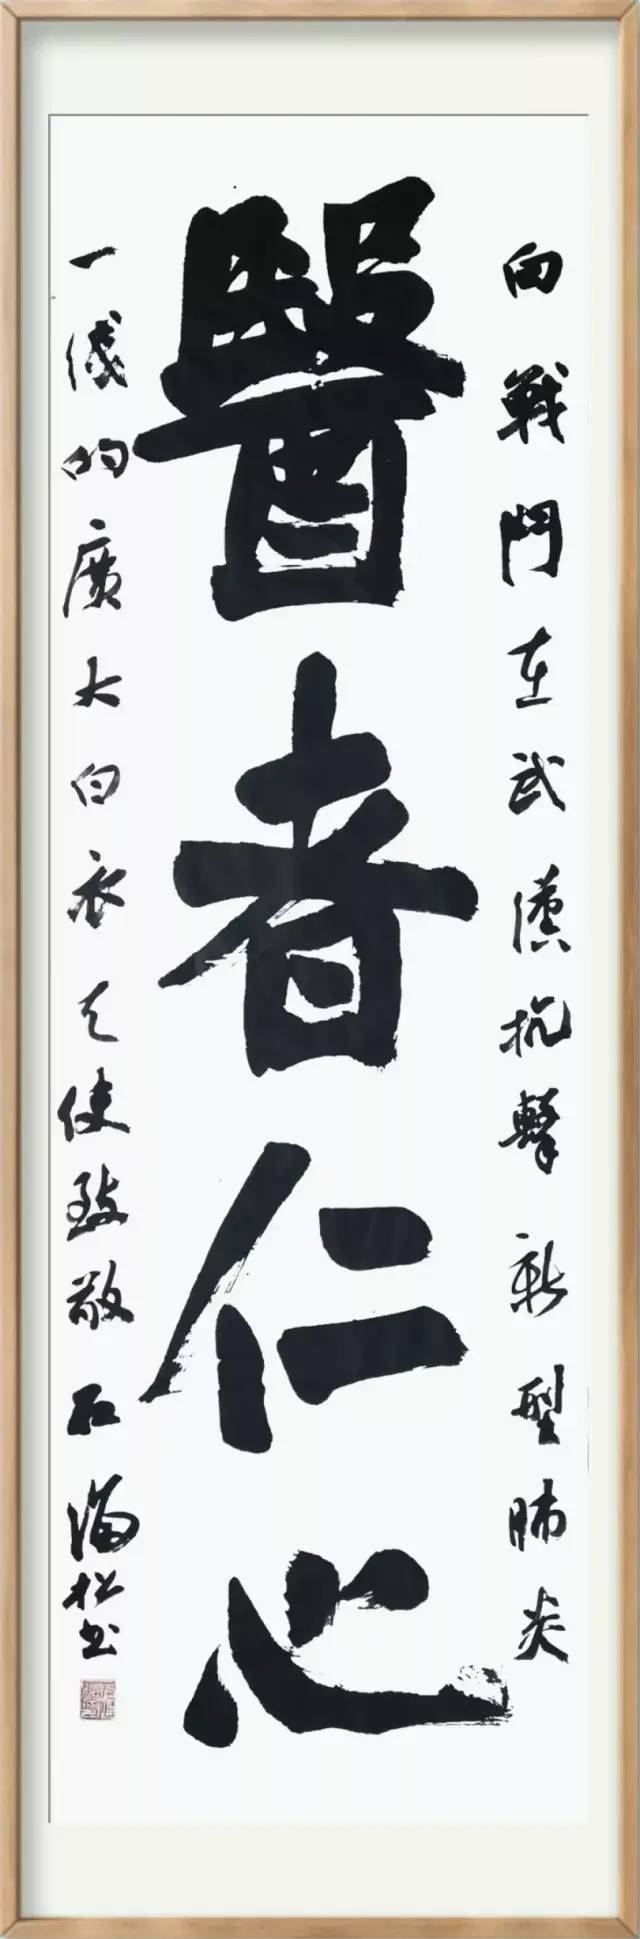 向戰鬥在武漢抗擊新型肺炎
醫者仁心
一線的廣大白衣天使致敬石松书